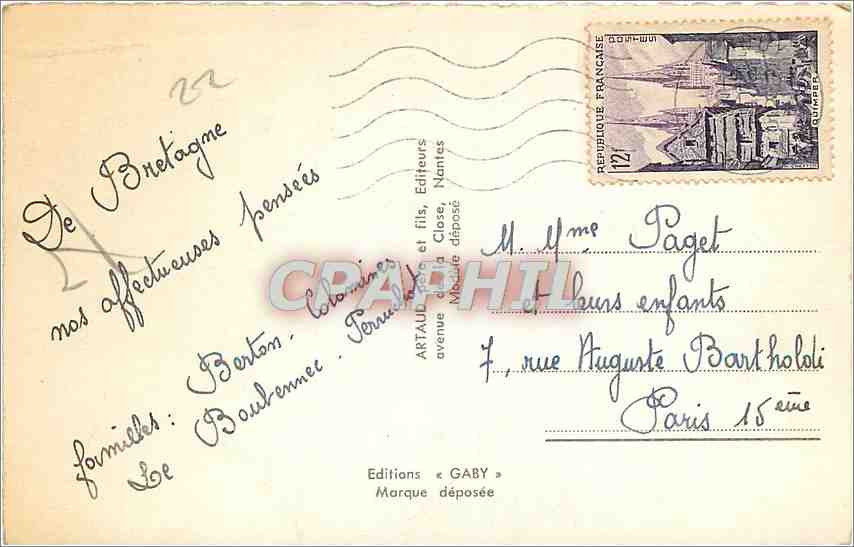 22
De Bretagne
nos affectueuses pensées
familles : Berton - Colomines
Le Boubennec . Perruchot
ARTAUD père et fils, Editeurs
avenue de la Close, Nantes
Modèle déposé
CPARPHIL
Editions « GABY »
Marque déposée
REPUBLIQUE FRANÇAISE
POSTES
12f
QUIMPER
M. Mme Paget
et leurs enfants
7, rue Auguste Bartholdi
Paris 15ème